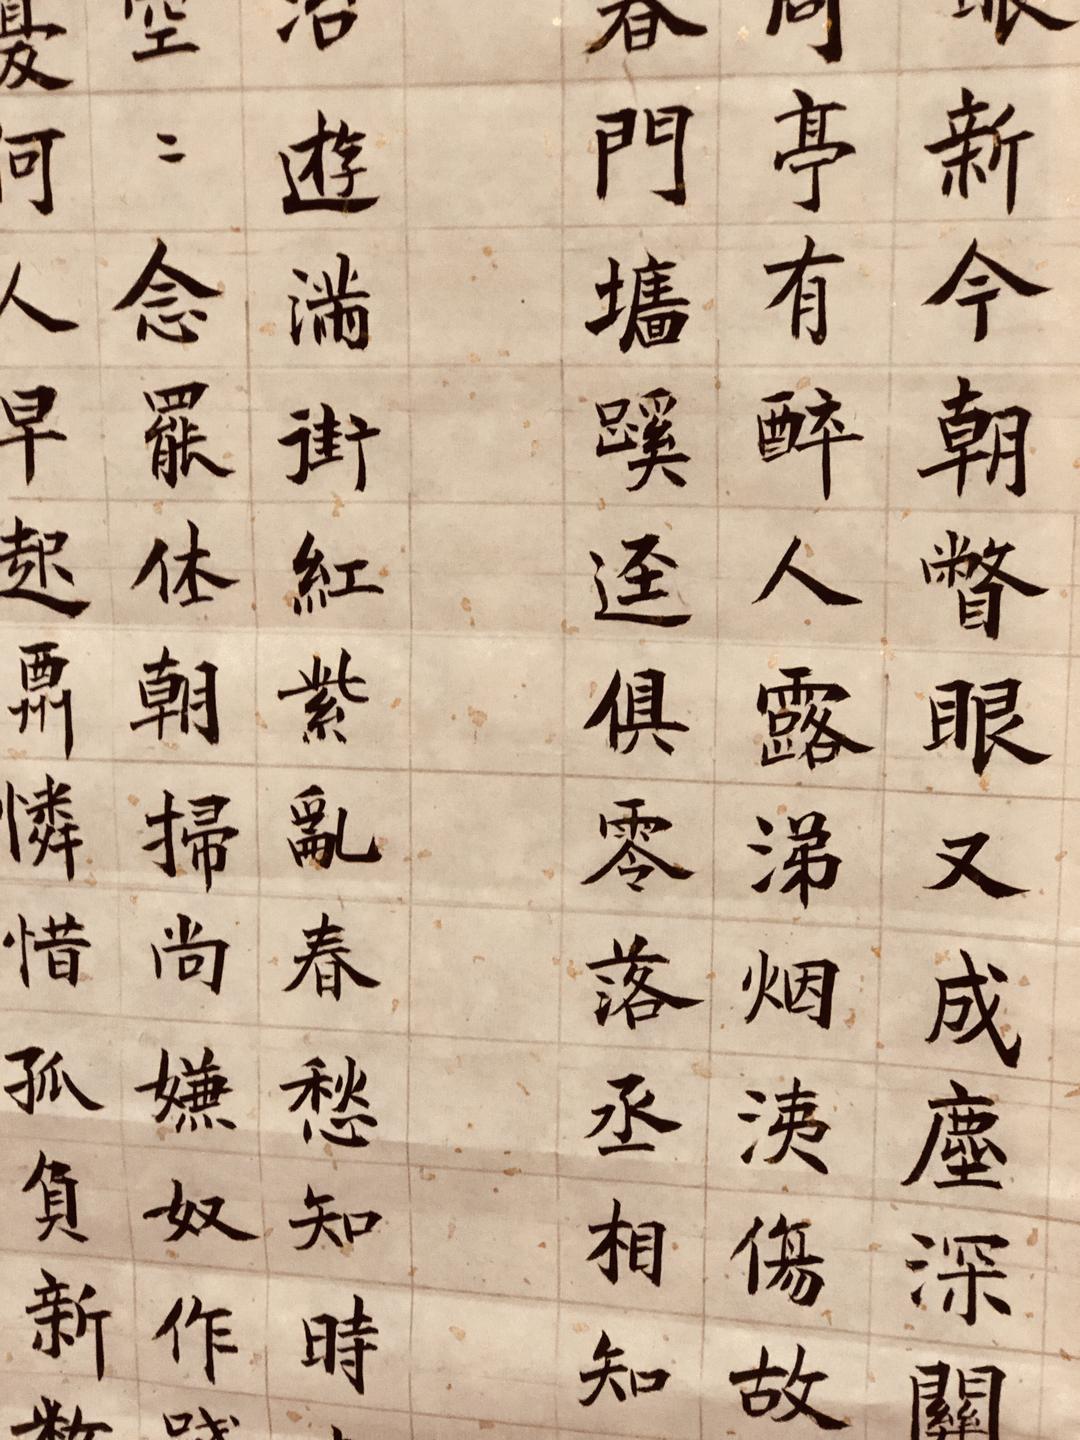 眼新今朝瞥眼又成塵深關
周亭有醉人露涕烟洟傷故
春門墻蹊逕俱零落丞相知
沿遊滿街紅紫亂春愁知時
空〻念罷休朝掃尚嫌奴作踐
憂何人早起粟憐惜孤負新數